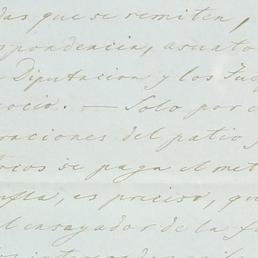 das que se remiten,
spondencia, asunto
Diputacion y los Juz
ocio. — Solo por e
raciones del patio y
ocos se paga el met
es preciso, qu
el ensayador de la